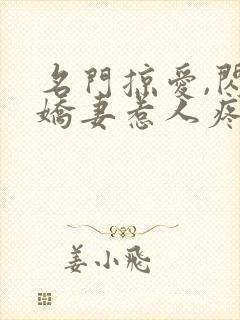 名門掠愛,閃
嬌妻惹人疼
姜小飛